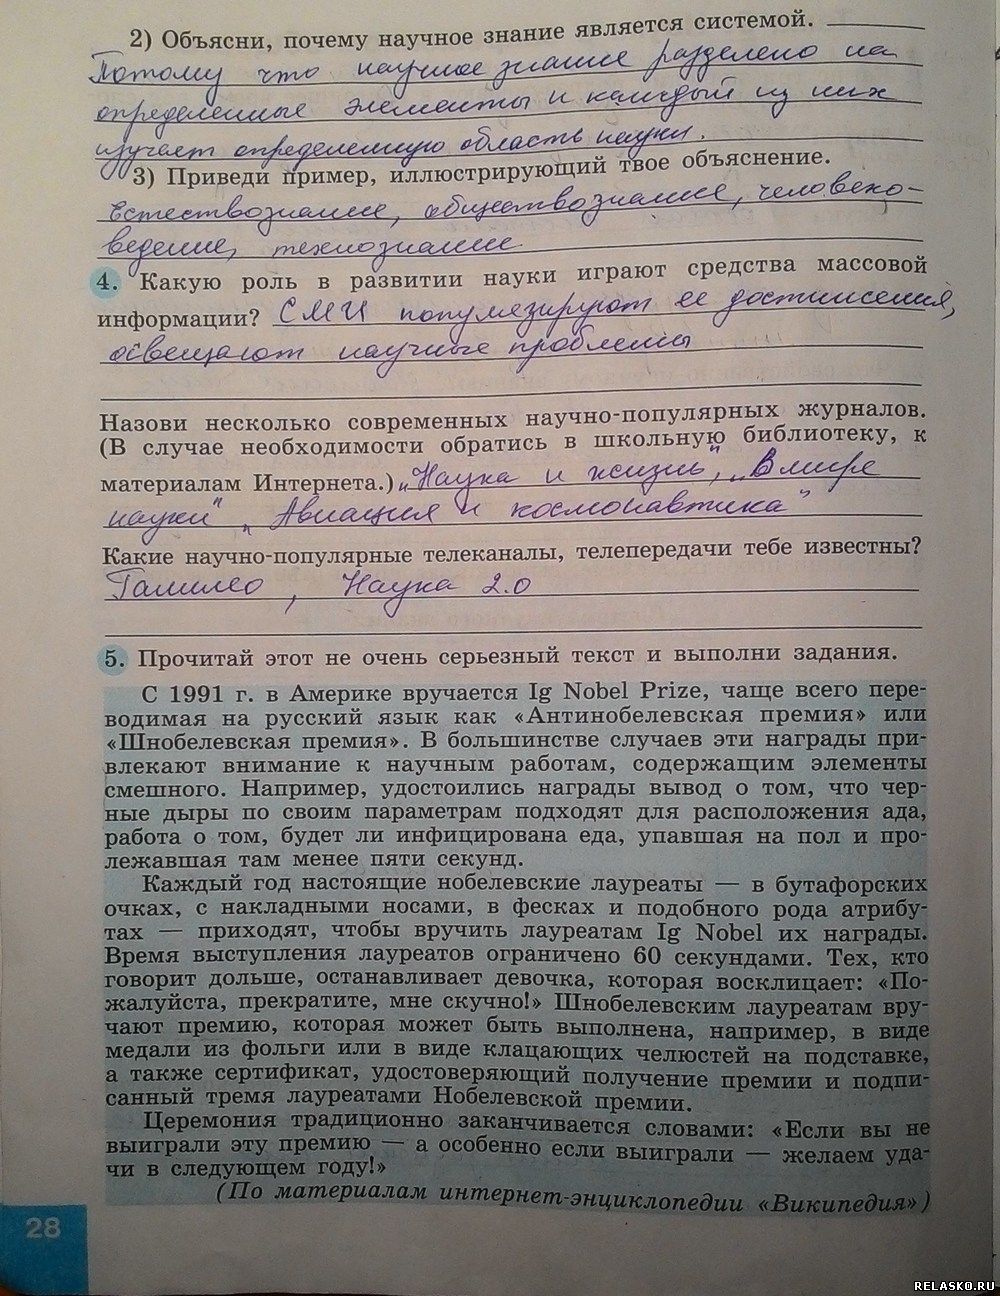 2) Объясни, почему научное знание является системой.
Потому что научное знание разделено на
определенные элементы и каждый из них
изучает определенную область науки.
3) Приведи пример, иллюстрирующий твое объяснение.
Естествознание, обществознание, человеко-
ведение, технознание.
4. Какую роль в развитии науки играют средства массовой
информации? СМИ популязируют ее достижения,
освещают научные проблемы
Назови несколько современных научно-популярных журналов.
(В случае необходимости обратись в школьную библиотеку, к
материалам Интернета.) „Наука и жизнь", „В мире
науки" „Авиация и космонавтика"
Какие научно-популярные телеканалы, телепередачи тебе известны?
Галилео, Наука 2.0
5. Прочитай этот не очень серьезный текст и выполни задания.
С 1991 г. в Америке вручается Ig Nobel Prize, чаще всего пере-
водимая на русский язык как «Антинобелевская премия» или
«Шнобелевская премия». В большинстве случаев эти награды при-
влекают внимание к научным работам, содержащим элементы
смешного. Например, удостоились награды вывод о том, что чер-
ные дыры по своим параметрам подходят для расположения ада,
работа о том, будет ли инфицирована еда, упавшая на пол и про-
лежавшая там менее пяти секунд.
Каждый год настоящие нобелевские лауреаты — в бутафорских
очках, с накладными носами, в фесках и подобного рода атрибу-
тах — приходят, чтобы вручить лауреатам Ig Nobel их награды.
Время выступления лауреатов ограничено 60 секундами. Тех, кто
говорит дольше, останавливает девочка, которая восклицает: «По-
жалуйста, прекратите, мне скучно!» Шнобелевским лауреатам вру-
чают премию, которая может быть выполнена, например, в виде
медали из фольги или в виде клацающих челюстей на подставке,
а также сертификат, удостоверяющий получение премии и подпи-
санный тремя лауреатами Нобелевской премии.
Церемония традиционно заканчивается словами: «Если вы не
выиграли эту премию — а особенно если выиграли — желаем уда-
чи в следующем году!»
(По материалам интернет-энциклопедии «Википедия»)
28
RELASKO.RU